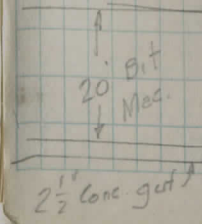 20' Bit
Mac.
2 1/2" Conc. gutt